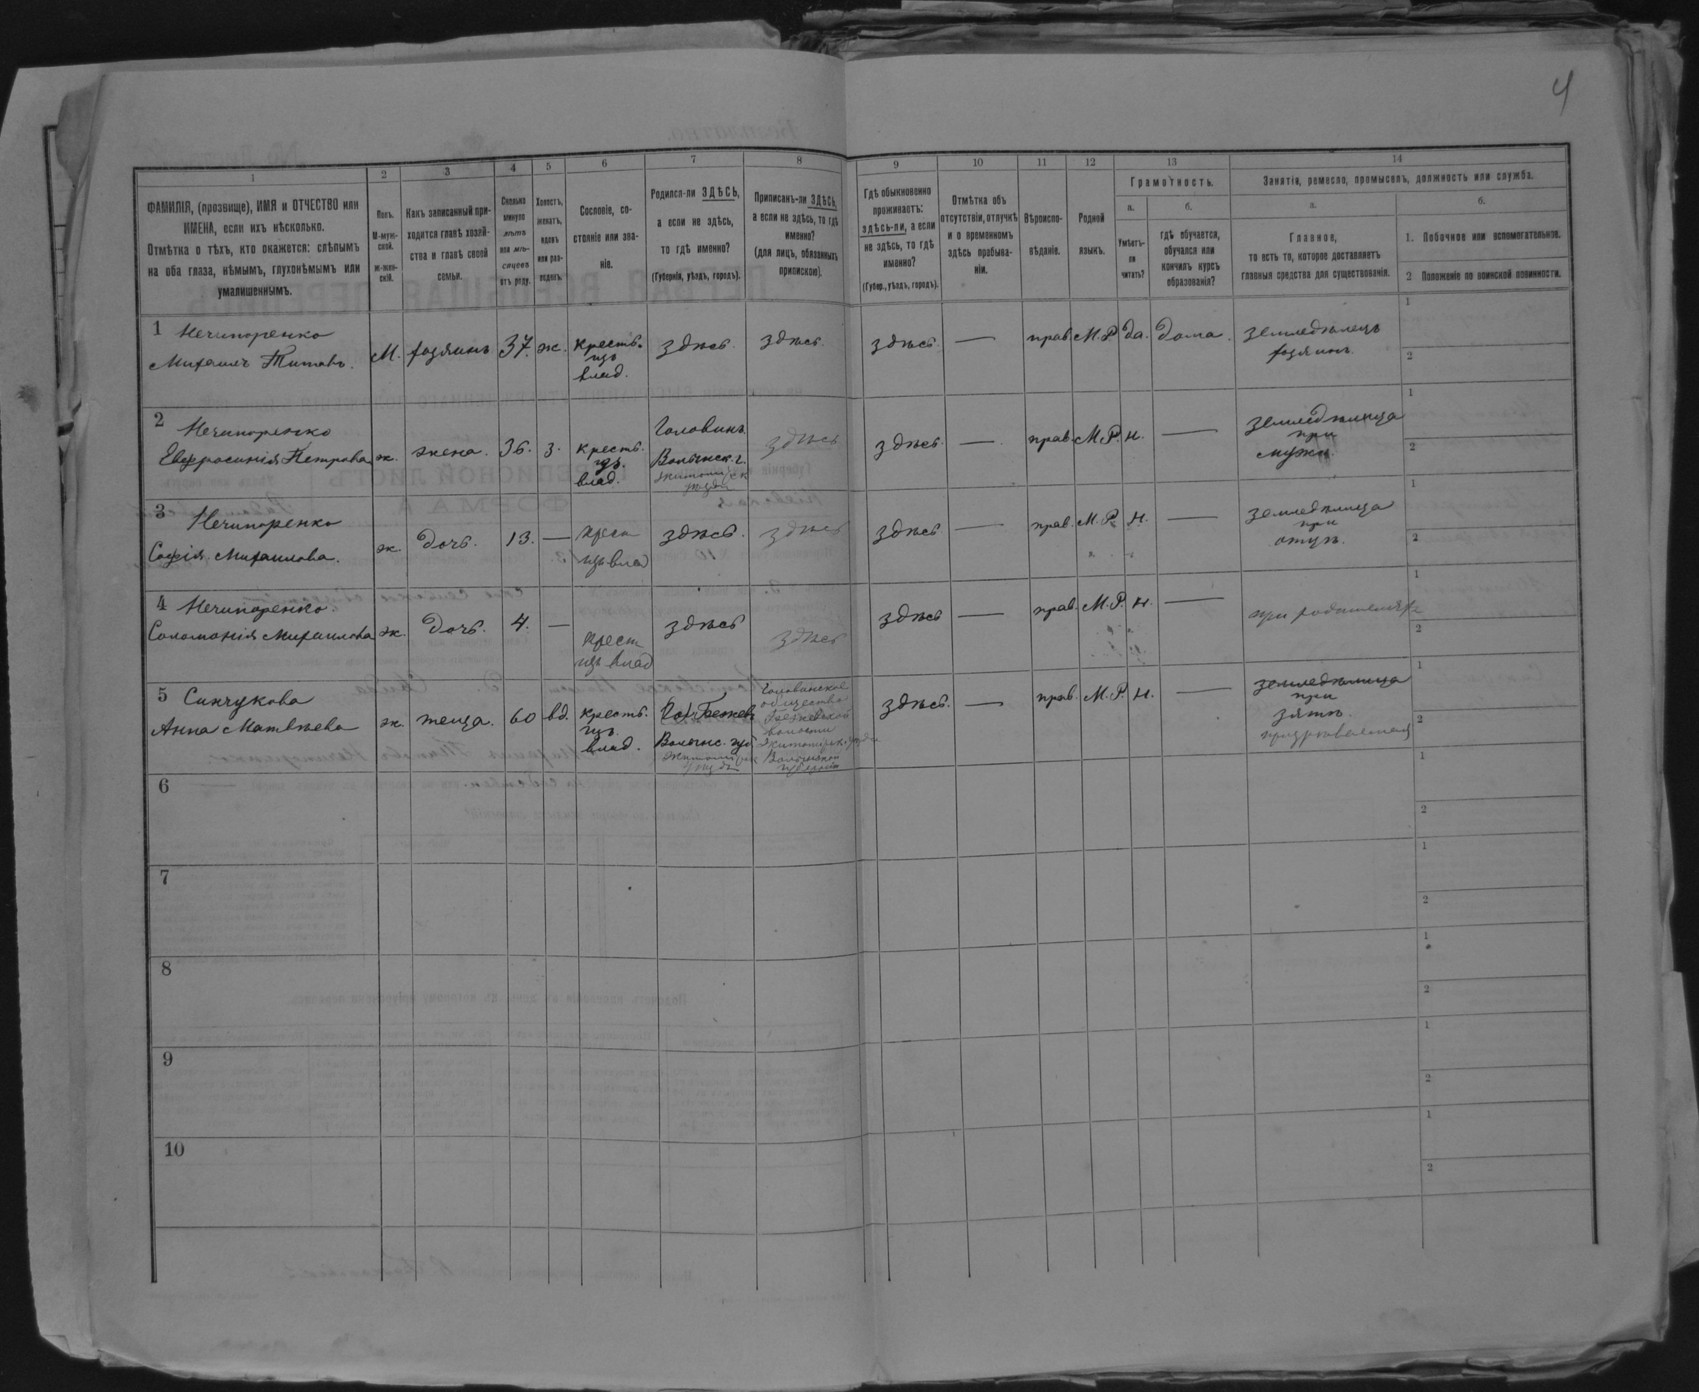 4
1
ФАМИЛІЯ, (прозвище), ИМЯ и ОТЧЕСТВО или
ИМЕНА, если ихъ нѣсколько.
Отмѣтка о тѣхъ, кто окажется: слѣпымъ
на оба глаза, нѣмымъ, глухонѣмымъ или
умалишеннымъ.
2
Полъ.
М-муж-
ской.
ж-жен-
скій.
3
Какъ записанный при-
ходится главѣ хозяй-
ства и главѣ своей
семьи.
4
Сколько
минуло
лѣтъ
или мѣ-
сяцевъ
отъ роду.
5
Холостъ,
женатъ,
вдовъ
или раз-
веденъ.
6
Сословіе, со-
стояніе или зва-
ніе.
7
Родился-ли ЗДѢСЬ,
а если не здѣсь,
то гдѣ именно?
(Губернія, уѣздъ, городъ).
8
Приписанъ-ли ЗДѢСЬ,
а если не здѣсь, то гдѣ
именно?
(для лицъ, обязанныхъ
припискою).
9
Гдѣ обыкновенно
проживаетъ:
здѣсь-ли, а если
не здѣсь, то гдѣ
именно?
(Губер., уѣздъ, городъ).
10
Отмѣтка объ
отсутствіи, отлучкѣ
и о временномъ
здѣсь пребыва-
ніи.
11
Вѣроиспо-
вѣданіе.
12
Родной
языкъ.
13
Грамотность.
а.
Умѣетъ-
ли
читать?
б.
гдѣ обучается,
обучался или
кончилъ курсъ
образованія?
14
Занятіе, ремесло, промыселъ, должность или служба.
а.
Главное,
то есть то, которое доставляетъ
главныя средства для существованія.
б.
1. Побочное или вспомогательное.
2 Положеніе по воинской повинности.
1 Нечипоренко
Михаилъ Титовъ.
М.
хозяинъ
37.
ж.
крестьн.
изъ
влад.
здѣсь.
здѣсь.
здѣсь
—
прав.
М.Р.
да.
дома.
земледѣлецъ
хозяинъ.
1
2
2
Нечипоренко
Евфросинія Петрова
ж.
жена.
36.
з.
крестьн.
изъ
влад.
Головинъ
Волынск. г.
Житомирск
уѣзда
здѣсь
здѣсь
—
прав.
М.Р.
н.
—
земледѣлица
при
мужѣ.
1
2
3
Нечипоренко
Софія Михаилова.
ж.
дочь.
13.
—
крест
изъ влад
здѣсь.
здѣсь
здѣсь
—
прав.
М.Р.
н.
—
земледѣлица
при
отцѣ.
1
2
4
Нечипоренко
Соломонія Михаилова
ж.
дочь.
4.
—
крест
изъ влад
здѣсь
здѣсь
здѣсь
—
прав.
М.Р.
н.
—
при родителяхъ
1
2
5
Синчукова
Анна Матвѣева
ж.
теща.
60
вд.
крестьн.
изъ
влад.
Волынс. губ
Житомирск
уѣзда
Головинское
общество
волости
Житомирск. уѣзда
Волынской
губерніи
здѣсь.
—
прав.
М.Р.
н.
—
земледѣлица
при
зятѣ.
1
2
6
1
2
7
1
2
8
1
2
9
1
2
10
1
2